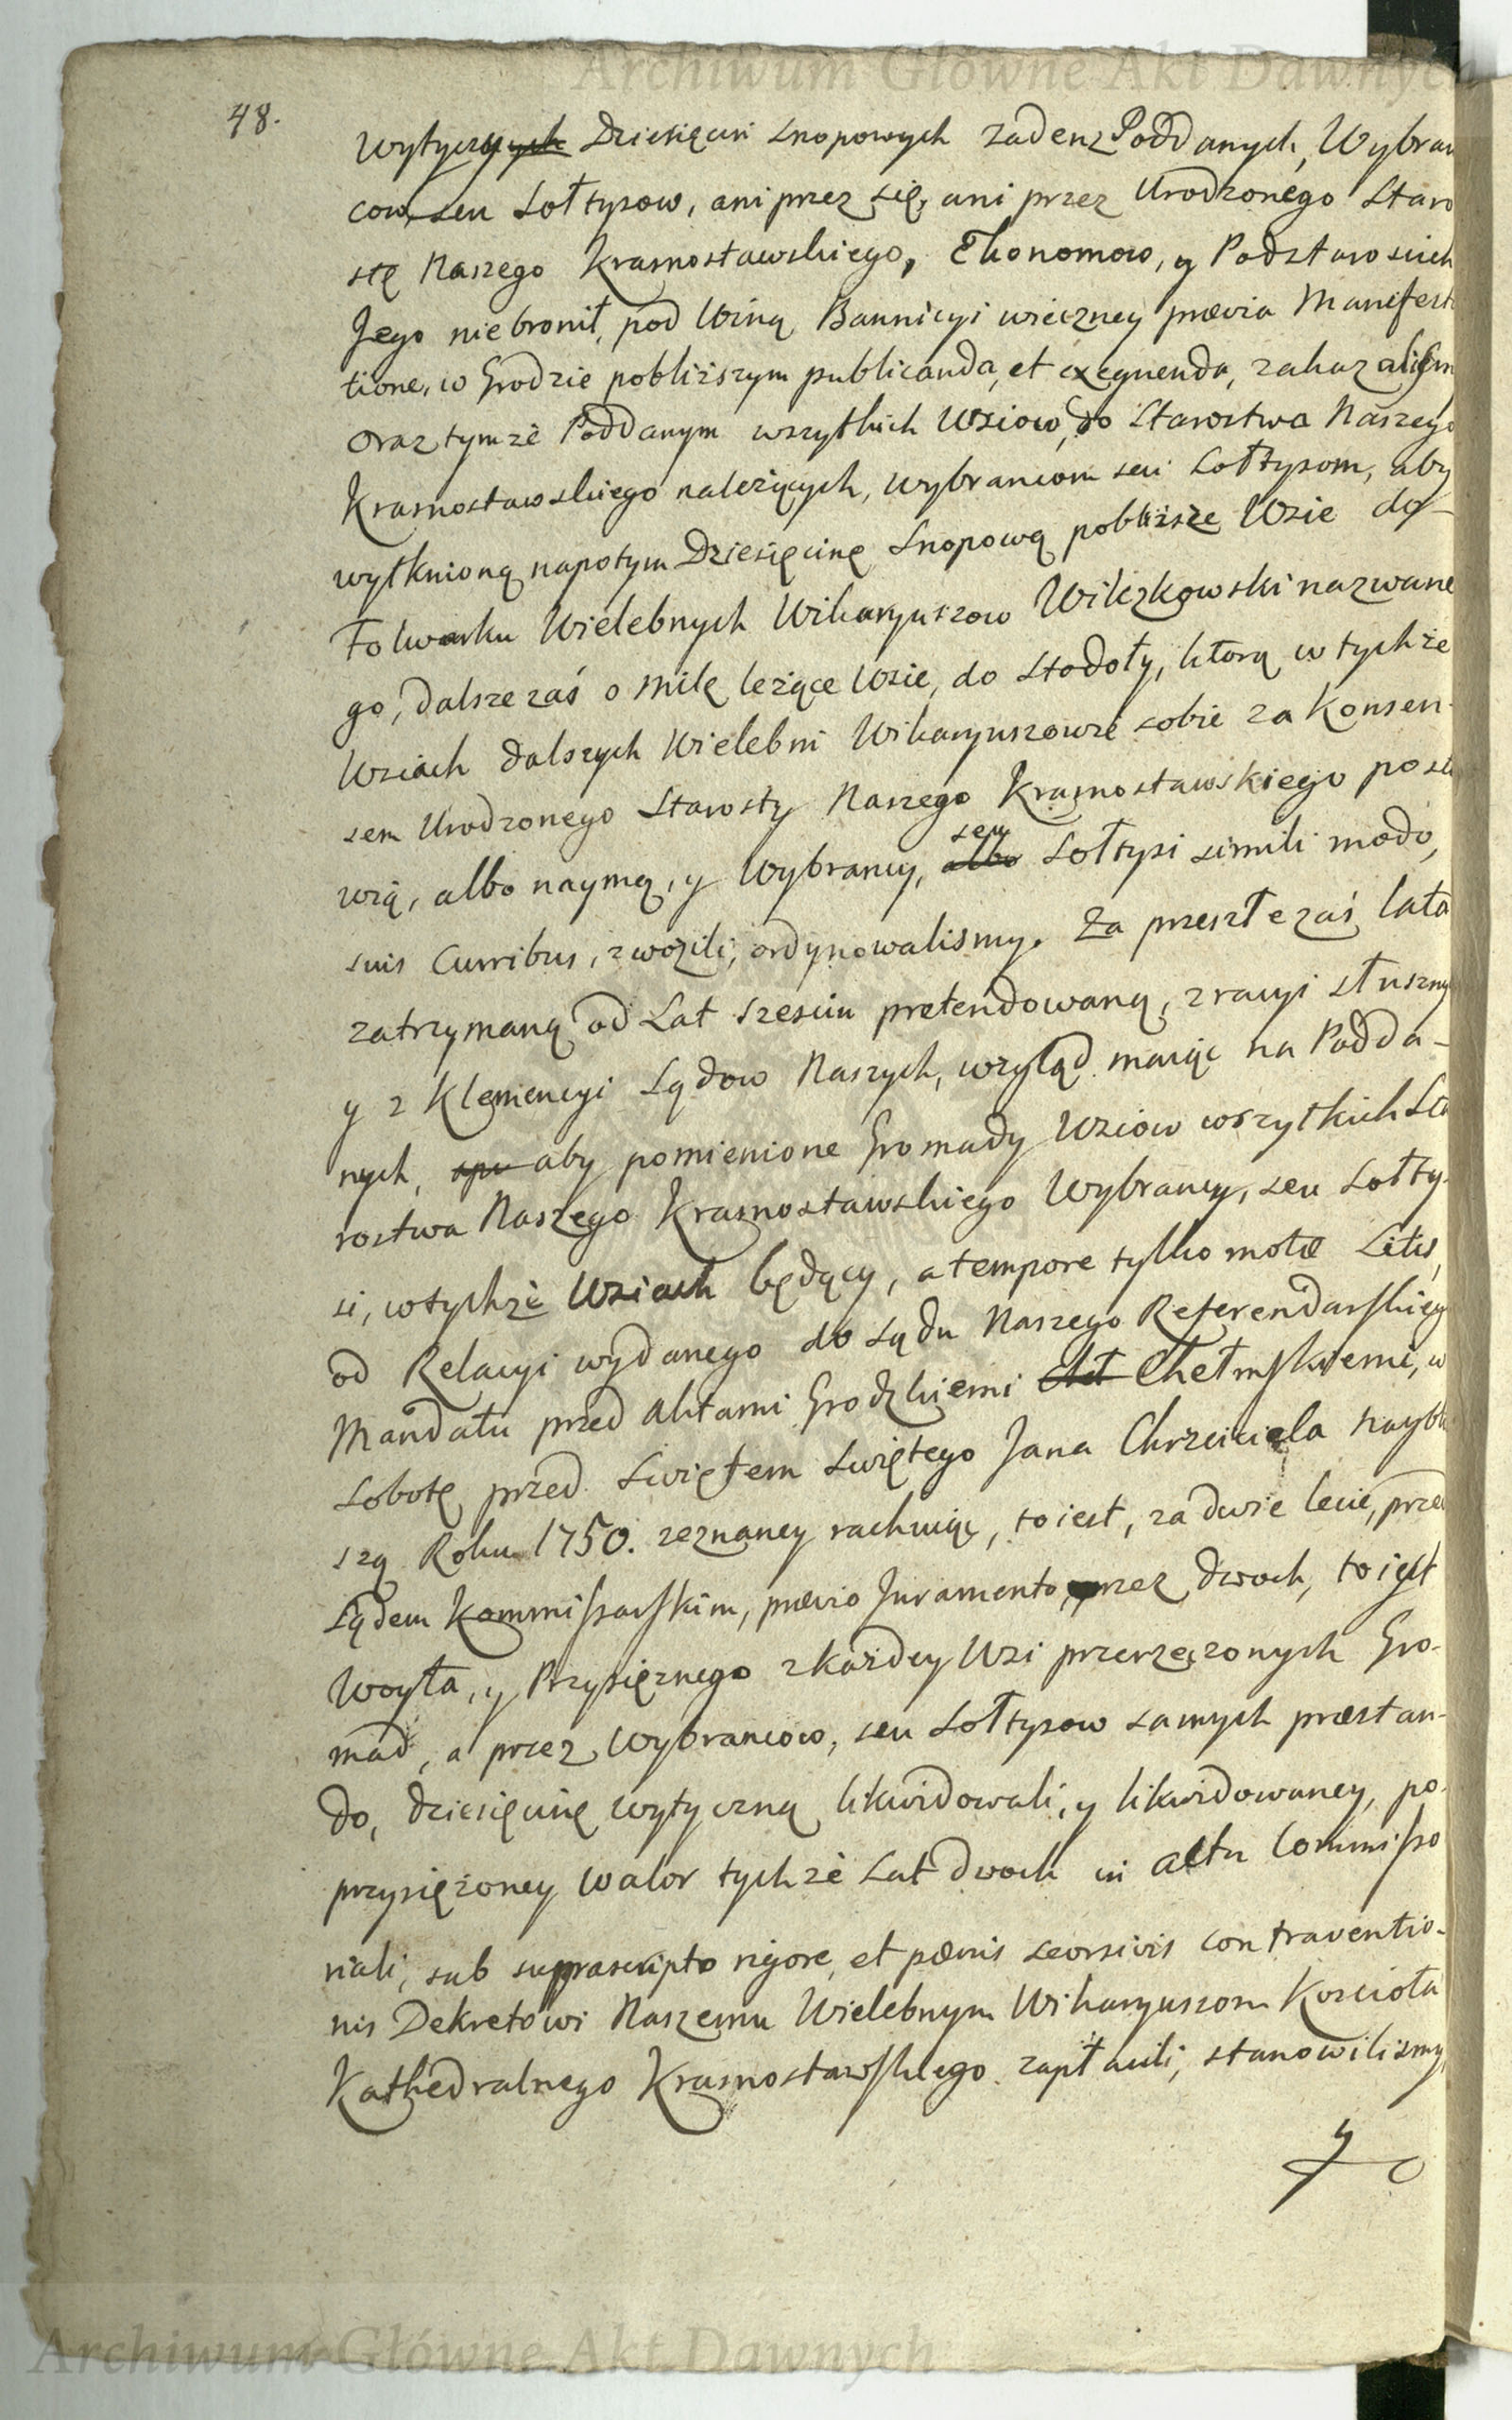 Archiwum Główne Akt Dawnych
48.
wytyczych Dziesięcin Snopowych zadenz Poddanych, Wybran
cow, seu Sołtysow, ani przez się, ani przez Urodzonego Staro
stę Naszego Krasnostawskiego, Ekonomow, y Podstaroscich
Jego niebronił, pod Winą Bannicyi wieczney prævia Manifest
tione, w Grodzie pobliższym publicanda, et exequenda, zakazalism
oraz tymże Poddanym wszytkich Wsiow, do Starostwa Naszego
Krasnostawskiego należących, wybrancom seu Sołtysom, aby
wytknioną napotym Dziesięcinę Snopową pobliższe Wsie do
Folwarku Wielebnych Wikaryuszow Wilczkowski nazwane
go, dalsze zaś o milę leżące Wsie, do Stodoły, ktorą w tychże
Wsiach dalszych Wielebni Wikaryuszowie sobie za Konsen-
sem Urodzonego Starosty Naszego Krasnostawskiego posta
wią, albo naymą, y Wybrancy, albo seu Sołtysi simili modo,
suis Curribus, zwozili, ordynowalismy. Za przeszłe zaś lata
zatrzymaną od Lat szesciu pretendowaną, z racyi słuszny
y z Klemencyi Sądow Naszych, wzgląd maiąc na Podda-
nych, apu aby pomienione Gromady Wsiow wszytkich Sta
rostwa Naszego Krasnostawskiego Wybrancy, seu Sołty-
si, w tychże Wsiach będący, a tempore tylko motæ Litis,
od Relacyi wydanego do Sądu Naszego Referendarskieg
Mandatu przed Aktami Grodzkiemi Cheł Chełmskiemi, w
Sobotę przed Swiętem Swiętego Jana Chrzciciela naybli
szą Roku 1750. zeznaney rachuiąc, to iest, za dwie lecie, przed
Sądem Kommissarskim, prævio Juramento, przez dwoch, to iest
Woyta, y Przysięznego z każdey Wsi przerzeczonych Gro-
mad, a przez Wybrancow, seu Sołtysow samych præstan-
do, dziesięcinę wytyczną likwidowali, y likwidowaney, po-
przysiężoney walor tychże Lat dwoch in actu Commisso
riali, sub suprascripto rigore, et pœnis seorsivis contraventio-
nis Dekretowi Naszemu Wielebnym Wikaryuszom Koscioła
Kathedralnego Krasnostawskiego zapłacili, stanowilismy,
y
Archiwum Główne Akt Dawnych